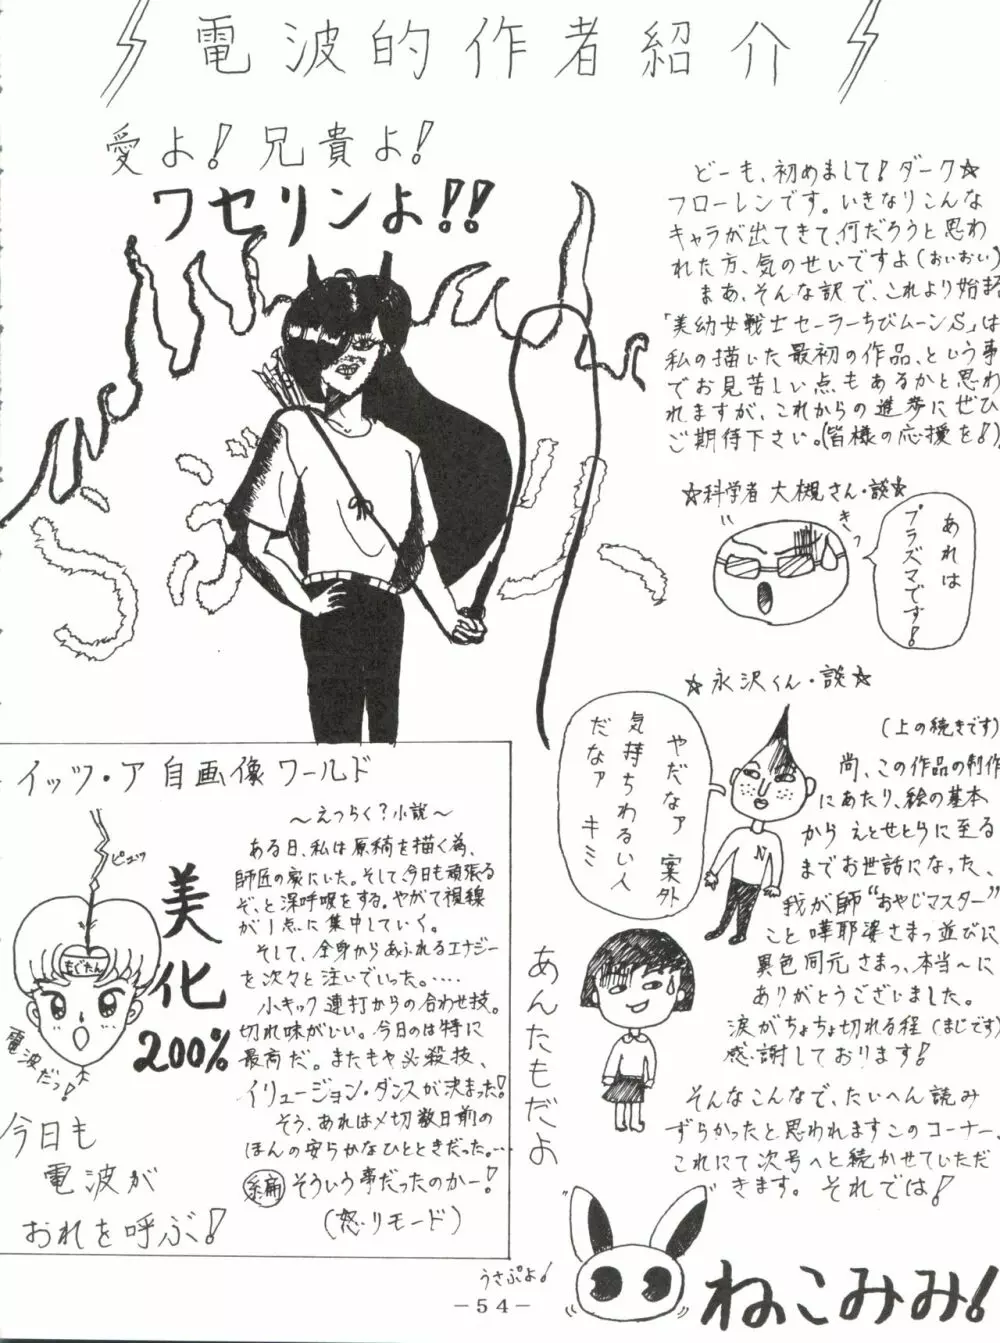 電波的作者紹介
愛よ!兄貴よ!
ワセリンよ!!
どーも、初めまして!ダーク☆
フローレンです。いきなりこんな
キャラが出てきて、何だろうと思わ
れた方、気のせいですよ(おいおい)
まあ、そんな訳で、これより始まる
「美幼女戦士セーラーちびムーンS」は
私の描いた最初の作品、という事
でお見苦しい点もあるかと思わ
れますが、これからの進歩にぜひ
ご期待下さい。(皆様の応援を!)
☆科学者 大槻さん・談☆
きっ
あれは
プラズマです!
☆永沢くん・談☆
やだなァ 案外
気持ちわるい人
だなァ キミ
N
あんたもだよ
(上の続きです)
尚、この作品の制作
にあたり、絵の基本
から えとせとらに至る
までお世話になった、
我が師“おやじマスター”
こと 嘩耶婆さまっ並びに
異色同元さまっ、本当〜に
ありがとうございました。
涙がちょちょ切れる程(まじです)
感謝しております!
そんなこんなで、たいへん読み
ずらかったと思われますこのコーナー、
これにて次号へと続かせていただ
きます。それでは!
イッツ・ア 自画像ワールド
ピュッ
むぐたん
電波だっ!
美化
200%
今日も
電波が
おれを呼ぶ!
〜えっらく?小説〜
ある日、私は原稿を描く為、
師匠の家にいた。そして、今日も頑張る
ぞ、と深呼吸をする。やがて視線
が1点に集中していく。
そして、全身からあふれるエナジー
を次々と注いでいった。……
小キック連打からの合わせ技。
切れ味がいい。今日のは特に
最高だ。またもや必殺技、
イリュージョン・ダンスが決まった!
そう、あれは〆切数日前の
ほんの安らかなひとときだった。…
編 そういう事だったのかー!
(怒・リモード)
うさぷよ!
ねこみみ!
-54-